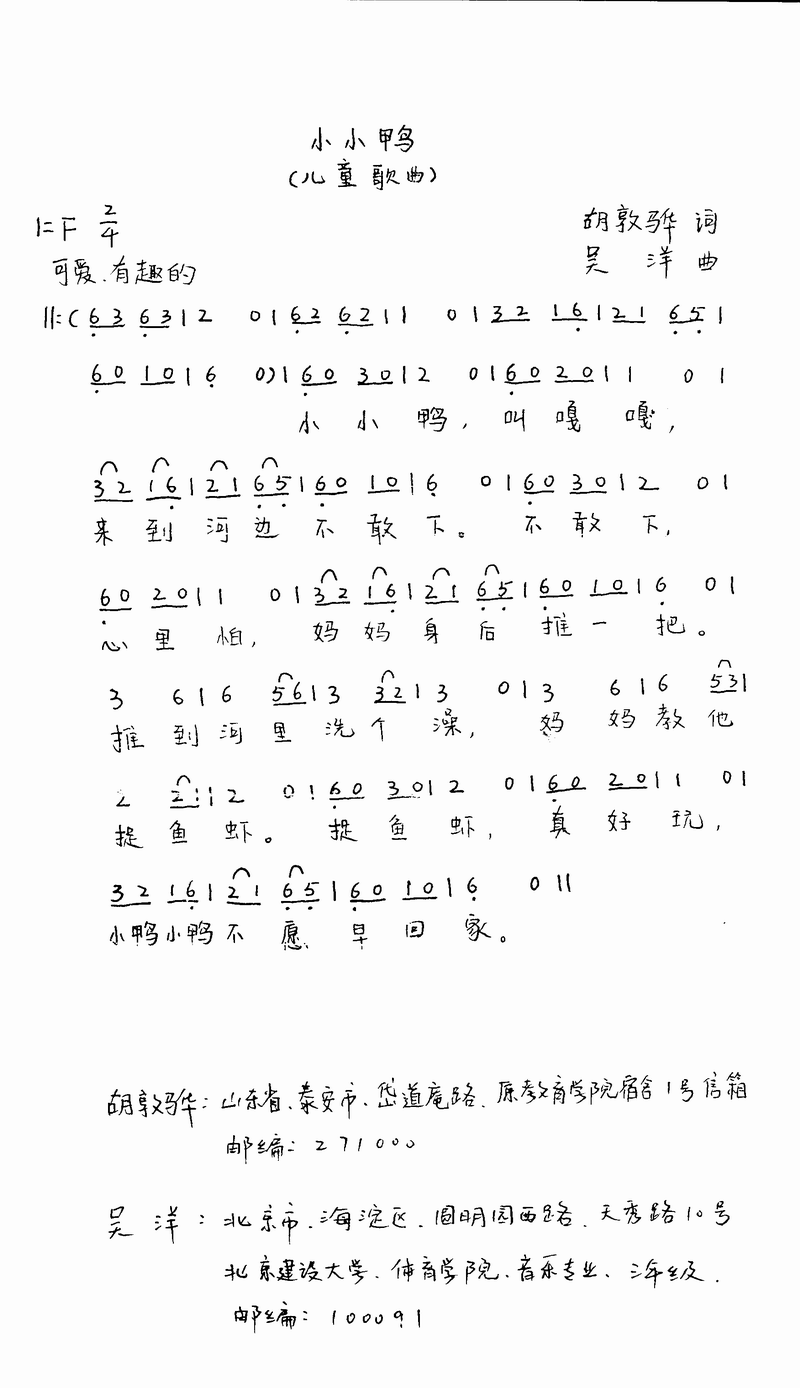 小小鸭
(儿童歌曲)
1=F 2/4
胡敦骅 词
可爱、有趣的
吴 洋 曲
||:( 6 3 6 3 | 2 0 | 6 2 6 2 | 1 0 | 3 2 1 6 | 2 1 6 5 |
6 0 1 0 | 6 0) | 6 0 3 0 | 2 0 | 6 0 2 0 | 1 0 |
小 小 鸭, 叫 嘎 嘎,
3 2 1 6 | 2 1 6 5 | 6 0 1 0 | 6 0 | 6 0 3 0 | 2 0 |
来 到 河 边 不 敢 下。 不 敢 下,
6 0 2 0 | 1 0 | 3 2 1 6 | 2 1 6 5 | 6 0 1 0 | 6 0 |
心 里 怕, 妈 妈 身 后 推 一 把。
3 6 | 6 5 6 | 3 3 2 | 3 0 | 3 6 | 6 5 3 |
推 到 河 里 洗 个 澡, 妈 妈 教 他
2 2 1 | 2 0 | 6 0 3 0 | 2 0 | 6 0 2 0 | 1 0 |
捉 鱼 虾。 捉 鱼 虾, 真 好 玩,
3 2 1 6 | 2 1 6 5 | 6 0 1 0 | 6 0 ||
小鸭小鸭不 愿 早 回 家。
胡敦骅: 山东省、泰安市、岱道庵路、原教育学院宿舍1号信箱
邮编: 271000
吴 洋: 北京市、海淀区、圆明园西路、天秀路10号
北京建设大学、体育学院、音乐专业、三年级.
邮编: 100091